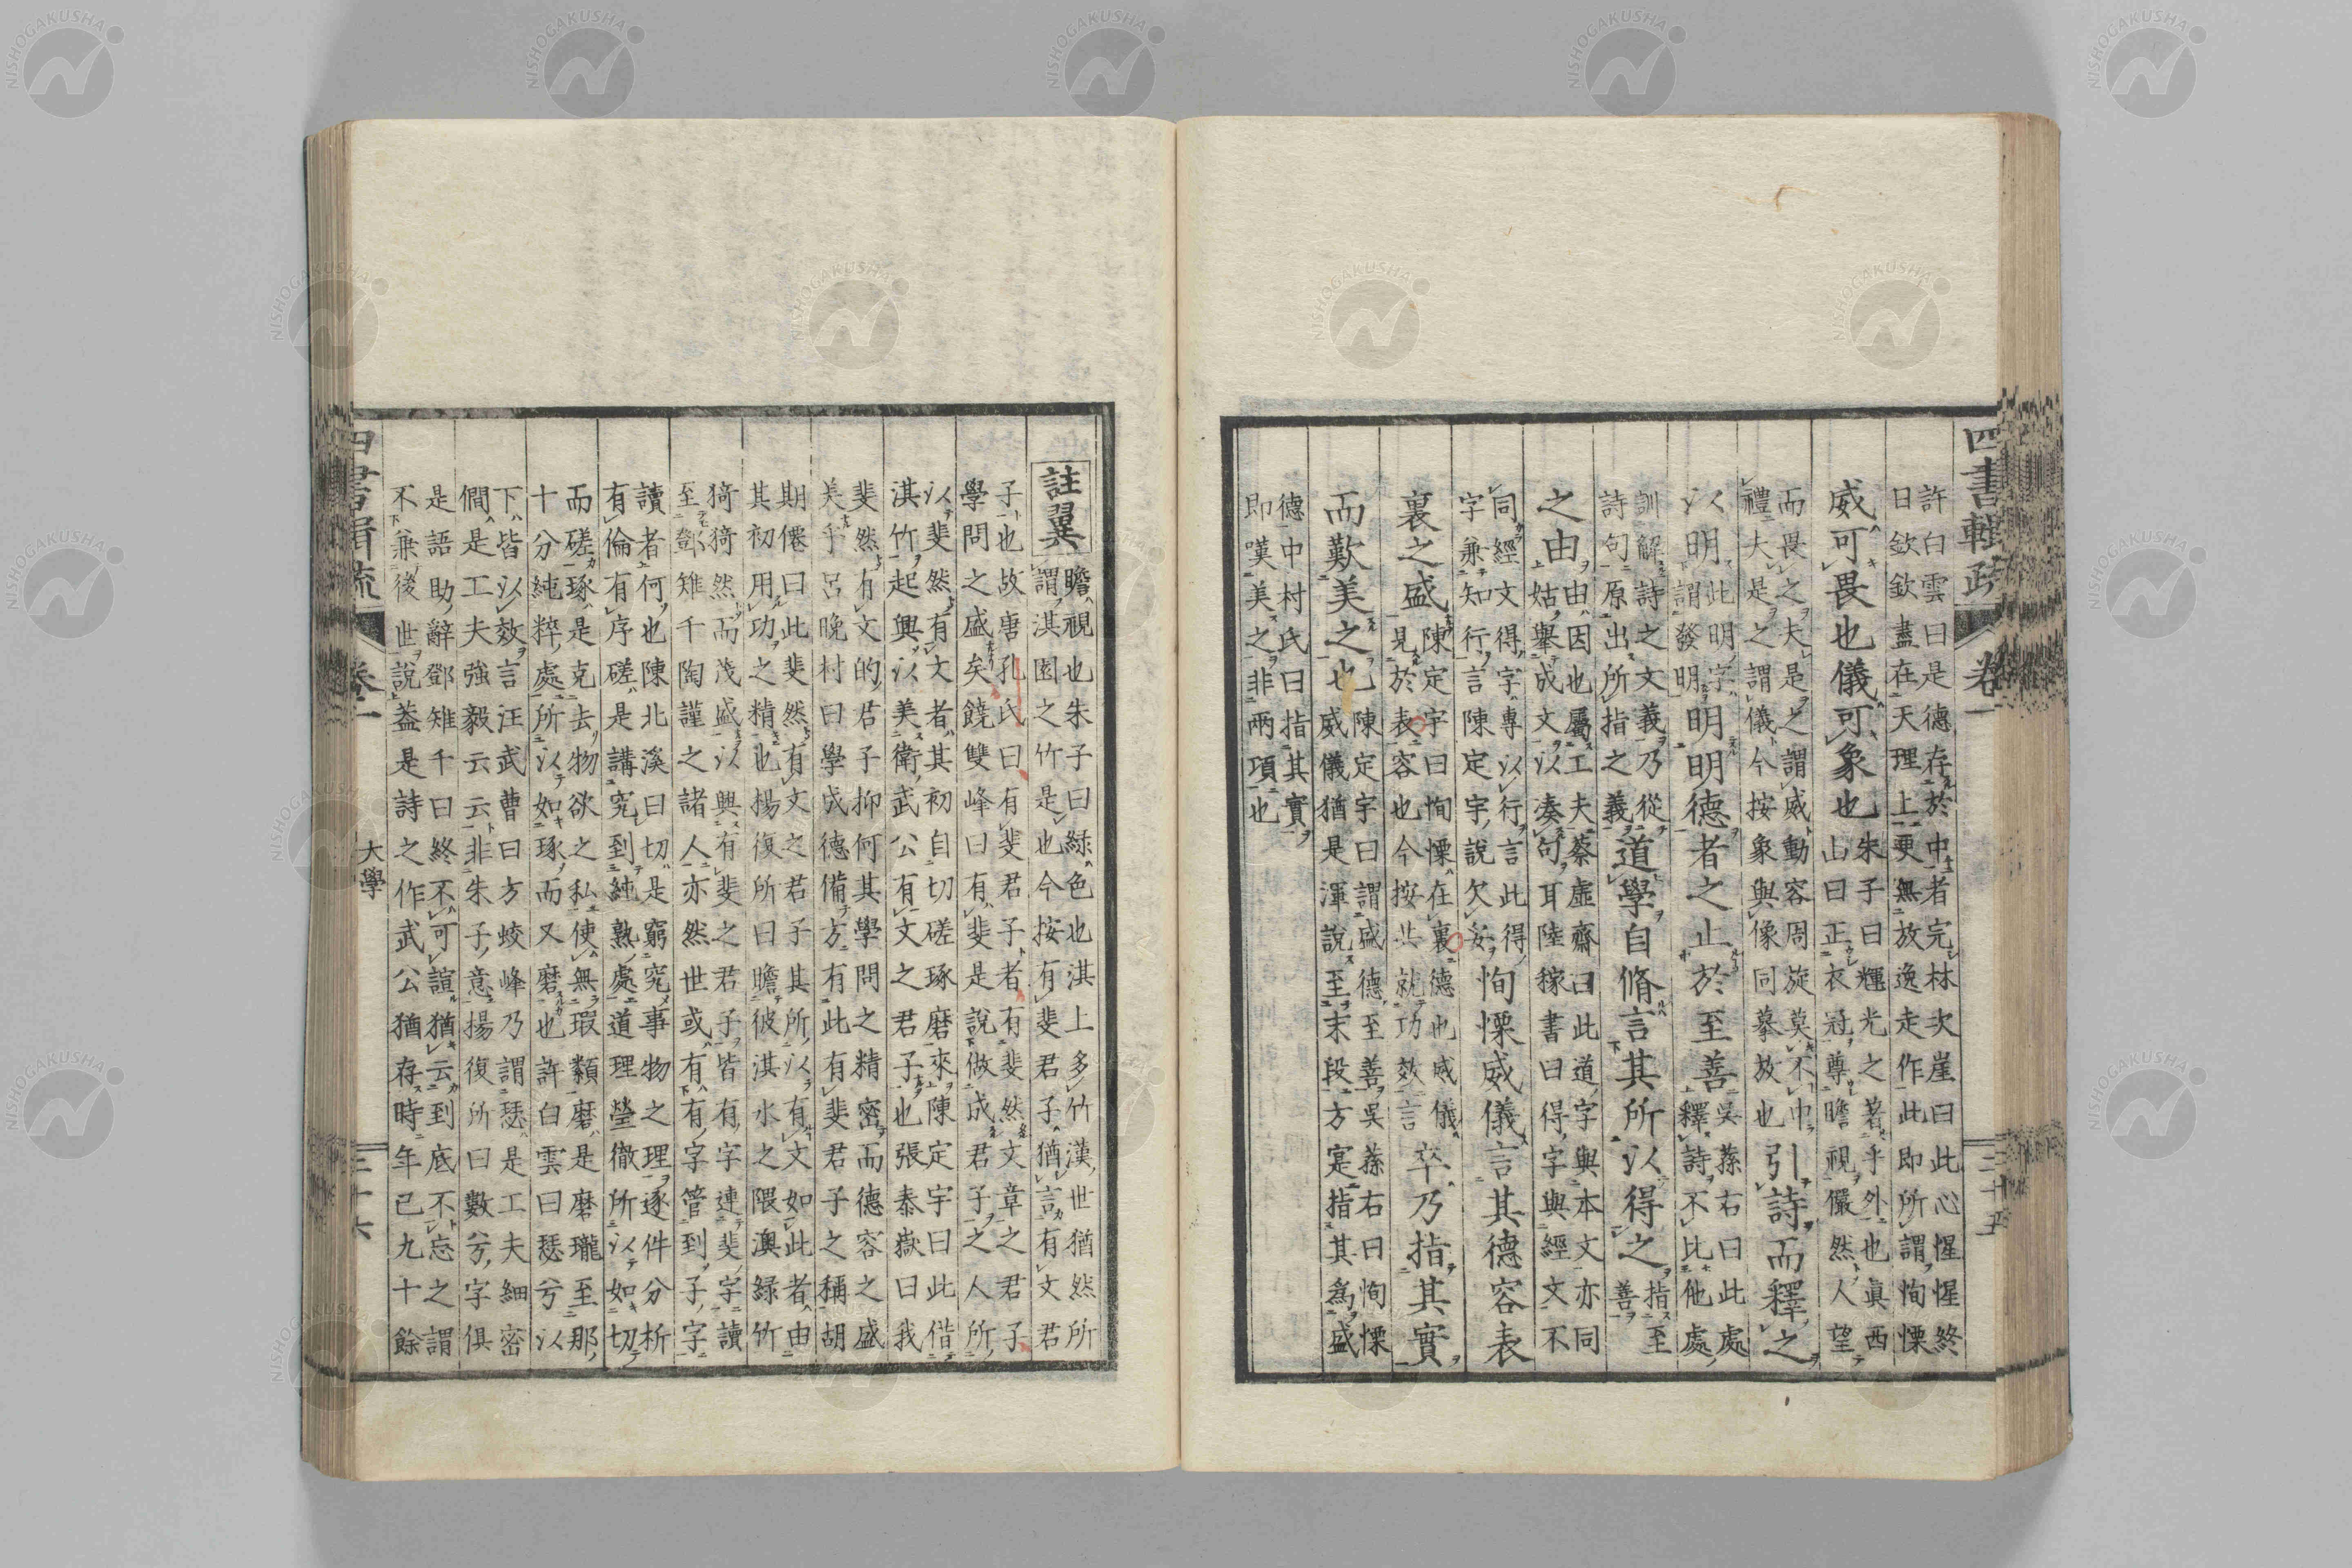 四書輯疏 卷一 二十五
許白雲曰是德存於中者完林次崖曰此心惺惺終
日欽欽盡在天理上更無放逸走作此即所謂恂慄
威可畏也儀可象也朱子曰輝光之著乎外也眞西山曰正衣冠尊瞻視儼然人望
而畏之夫是之謂威動容周旋莫不中禮夫是之謂儀今按象與像同摹放也引詩而釋之
以明此明字謂發明明明德者之止於至善吳蓀右曰此處釋詩不比他處
訓解詩之文義乃從詩句原出所指之義道學自脩言其所以得之指至善
之由由因也屬工夫蔡虛齋曰此道字與本文亦同姑舉成文以湊句耳陸稼書曰得字與經文不
同經文得字專以行言此得字兼知行言陳定宇說欠妥恂慄威儀言其德容表
裏之盛陳定宇曰恂慄在裏德也威儀見於表容也今按此就功效言卒乃指其實
而歎美之也陳定宇曰謂盛德至善吳蓀右曰恂慄威儀猶是渾說至末段方寔指其爲盛
德中村氏曰指其實
即嘆美之非兩項也
註翼
瞻視也朱子曰綠色也淇上多竹漢世猶然所
謂淇園之竹是也今按有斐君子猶言有文君
子也故唐孔氏曰有斐君子者有斐然文章之君子
學問之盛矣饒雙峰曰有斐是說做成君子之人所
以斐然有文者其初自切磋琢磨來陳定宇曰此借
淇竹起興以美衛武公有文之君子也張泰嶽曰我
斐然有文的君子抑何其學問之精密而德容之盛
美乎呂晚村曰學成德備方有此有斐君子之稱胡
期僊曰此斐然有文之君子其所以有文如此者由
其初用功之精也揚復所曰瞻彼淇水之隈澳綠竹
猗猗然而茂盛以興有斐之君子皆有字連斐字讀
至鄧雉千陶謹之諸人亦然世或有有字管到子字
讀者何也陳北溪曰切是窮究事物之理逐件分析
有倫有序磋是講究到純熟處道理瑩徹所以如切
而磋琢是克去物欲之私使無瑕纇磨是磨瓏至那
十分純粹處所以如琢而又磨也許白雲曰瑟兮以
下皆以效言汪武曹曰方蛟峰乃謂瑟是工夫細密
僩是工夫強毅云云非朱子意揚復所曰數兮字俱
是語助辭鄧雉千曰終不可諠猶云到底不忘之謂
不兼後世說蓋是詩之作武公猶存時年已九十餘
四書輯疏 卷一 大學 二十六